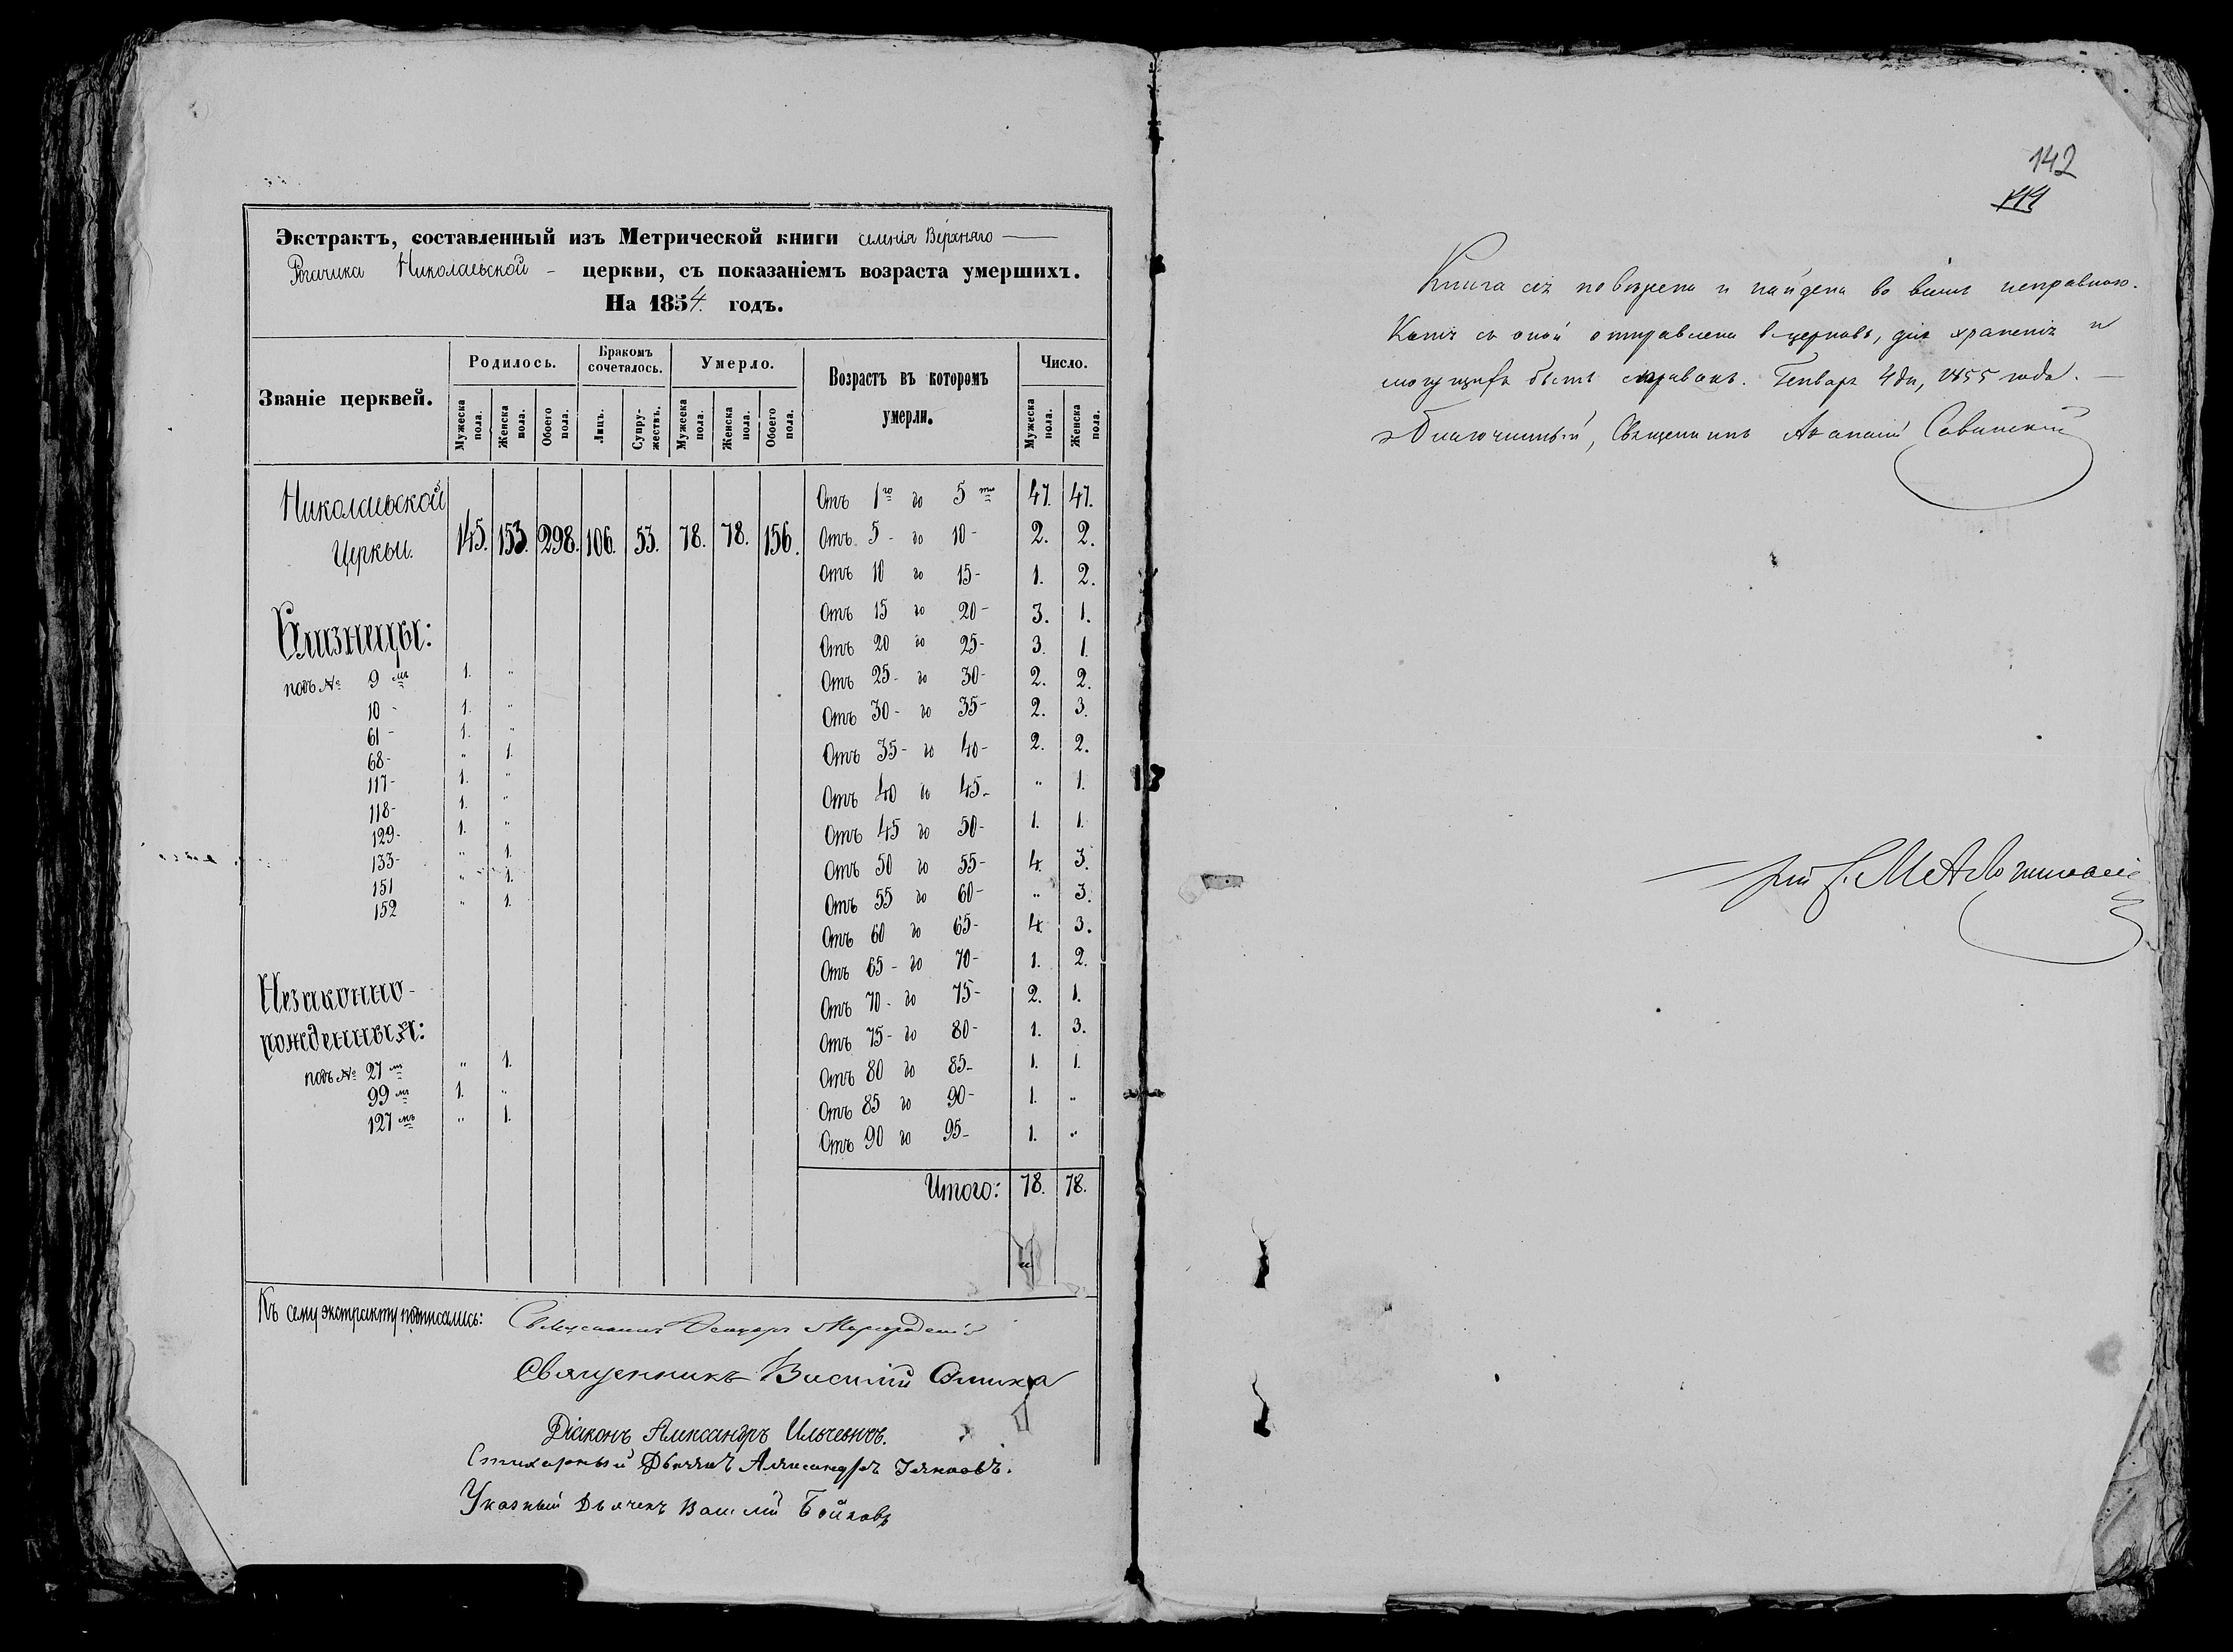 Экстрактъ, составленный изъ Метрической книги селенія Верхняго
Рогачика Николаевской - церкви, съ показаніемъ возраста умершихъ.
На 1854. годъ.
Званіе церквей. Родилось. Бракомъ сочеталось. Умерло. Возрастъ въ которомъ умерли. Число.
Мужеска пола. Женска пола. Обоего пола. Лицъ. Супружествъ. Мужеска пола. Женска пола. Обоего пола. Мужеска пола. Женска пола.
Николаевской
Церкви. 145. 153. 298. 106. 53. 78. 78. 156.
Близнецы:
подъ № 9 мъ 1. "
10 - 1. "
61 - 1. "
68 - " 1.
117 - 1. "
118 - 1. "
129 - 1. "
133 - " 1.
151 " 1.
152 " 1.
Незаконно-
рожденныя:
подъ № 27 мъ " 1.
99 мъ 1. "
127 мъ " 1.
Отъ 1го до 5ти 47. 47.
Отъ 5 - до 10 - 2. 2.
Отъ 10 до 15 - 1. 2.
Отъ 15 до 20 - 3. 1.
Отъ 20 до 25 - 3. 1.
Отъ 25 - до 30 - 2. 2.
Отъ 30 - до 35 - 2. 3.
Отъ 35 - до 40 - 2. 2.
Отъ 40 до 45 - " 1.
Отъ 45 до 50 - 1. 1.
Отъ 50 до 55 - 4. 3.
Отъ 55 до 60 - " 3.
Отъ 60 до 65 - 4. 3.
Отъ 65 - до 70 - 1. 2.
Отъ 70 - до 75 - 2. 1.
Отъ 75 - до 80 - 1. 3.
Отъ 80 до 85 - 1. 1.
Отъ 85 до 90 - 1. "
Отъ 90 до 95 - 1. "
Итого: 78. 78.
Къ сему экстракту подписались: Священникъ
Священникъ Василій
Діаконъ Александръ
Стихарный Дьячекъ Александръ
Указный Дьячекъ Василій Бойковъ
142
Книга сія повѣрена и найдена во всемъ исправною.
Копія съ оной отправлена в церковь, для храненія и
могущихъ быть справокъ. Генваря 4 дн, 1855 года. —
Благочинный, Священникъ Савинскій